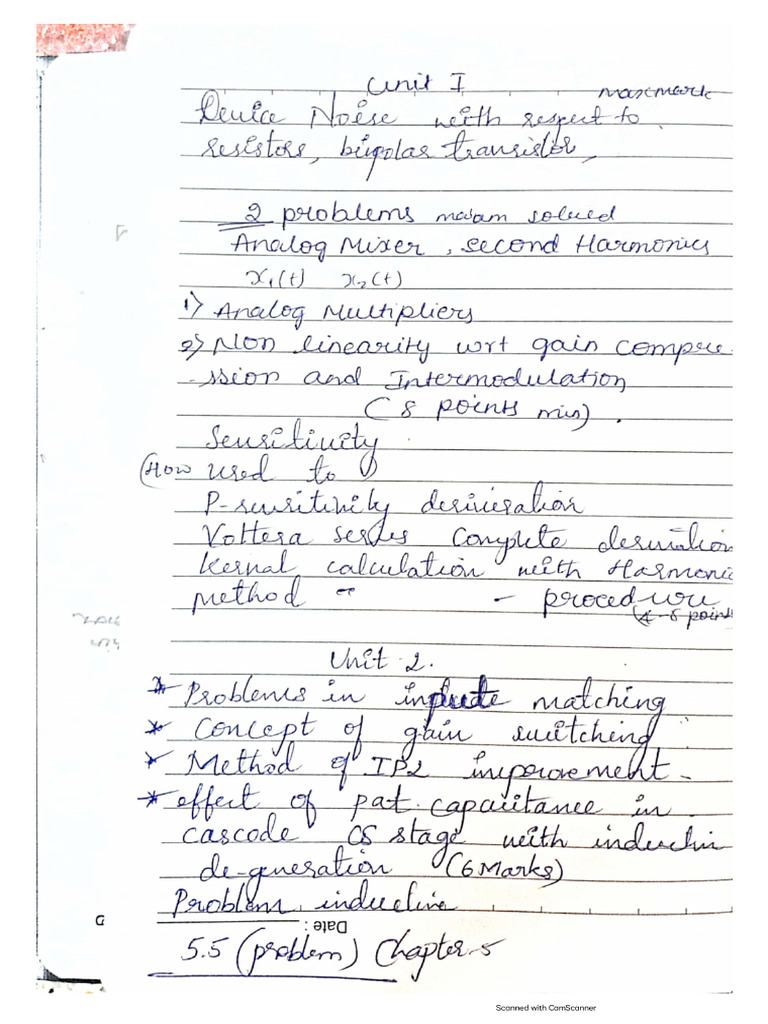 Unit I
maxmark
Device Noise with respect to
resistors, bipolar transistor,
2 problems ma'am solved
Analog Mixer, second Harmonics
x₁(t) x₂(t)
1) Analog Multipliers
2) Non linearity wrt gain compre
-ssion and Intermodulation
(8 points min).
Sensitivity
(How used to
P-sensitivity derivation
Voltera series complete derivation
Kernal calculation with Harmonic
method - procedure
(4-5 points
Unit 2.
* Problems in inpute matching
* Concept of gain switching
* Method of IP2 improvement -
* effect of pat. capacitance in
cascode CS stage with inductin
de-generation (6 Marks)
Problem inductive
Date :
5.5 (problem) Chapter-5
Scanned with CamScanner